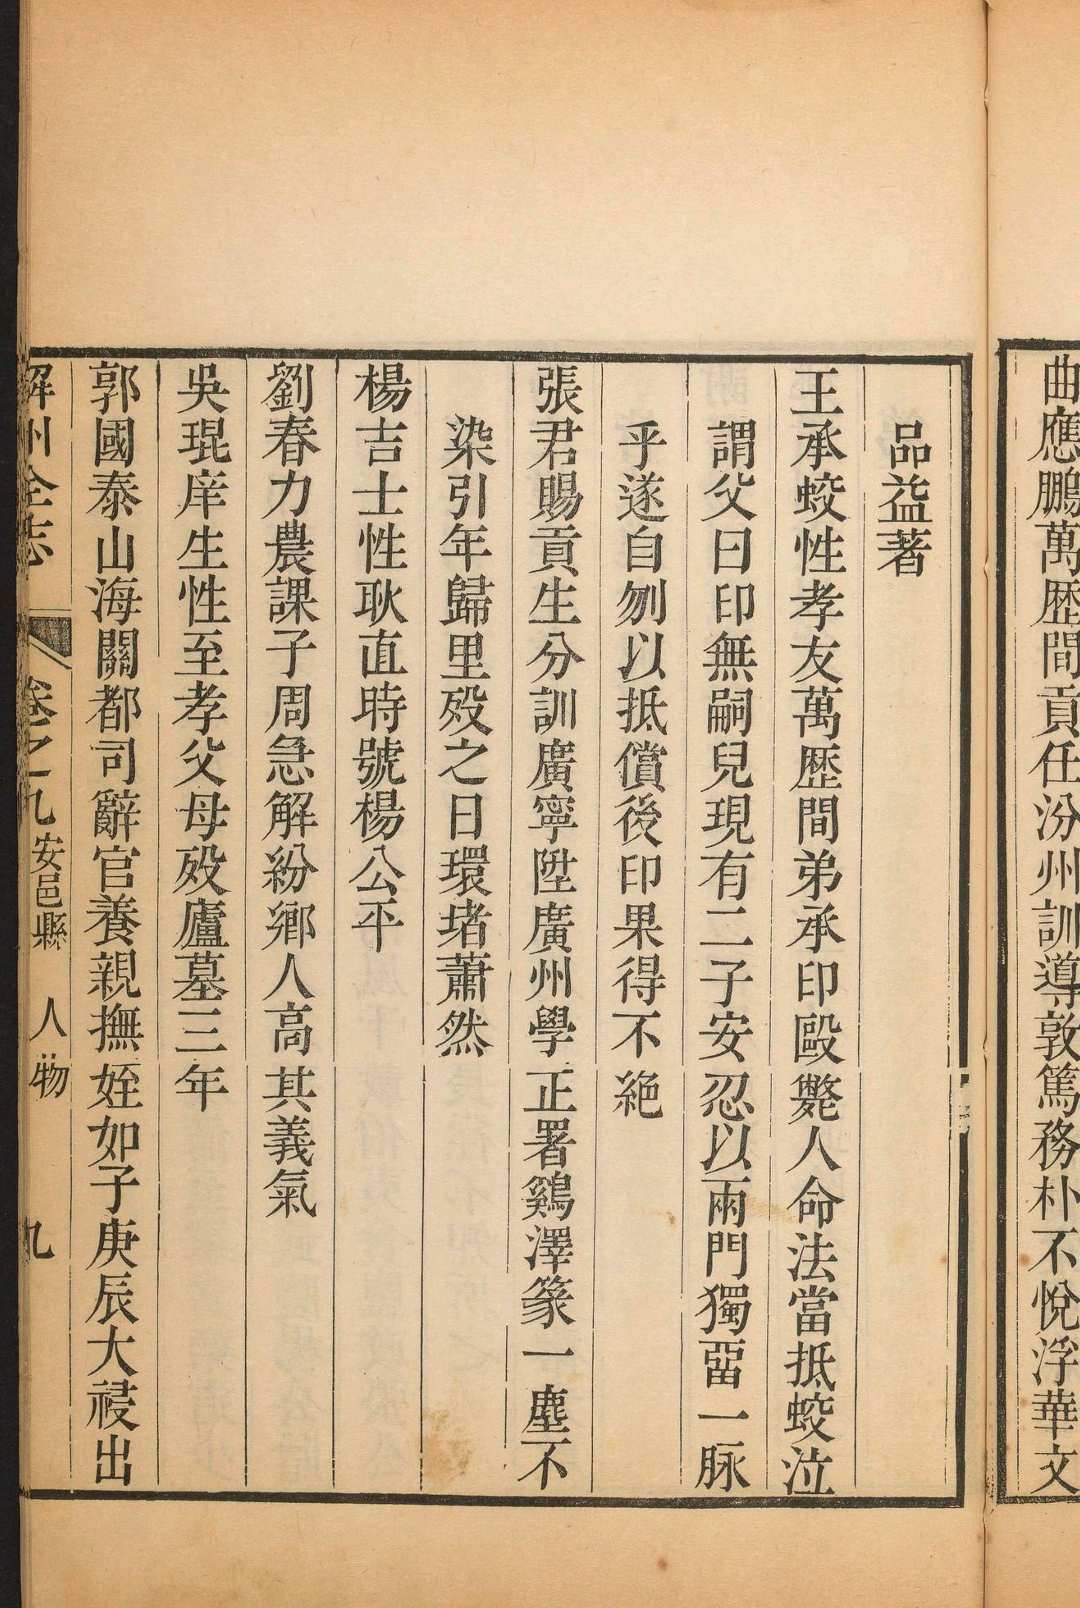 曲應鵬萬歴間貢任汾州訓導敦篤務朴不悅浮華文
品益著
王承蛟性孝友萬歴間弟承印毆斃人命法當抵蛟泣
謂父曰印無嗣兒現有二子安忍以兩門獨畱一脉
乎遂自刎以抵償後印果得不絶
張君賜貢生分訓廣寧陞廣州學正署鷄澤篆一塵不
染引年歸里歿之日環堵蕭然
楊吉士性耿直時號楊公平
劉春力農課子周急解紛鄉人高其義氣
吳琨庠生性至孝父母歿廬墓三年
郭國泰山海關都司辭官養親撫姪如子庚辰大祲出
解州全志 卷之九 安邑縣 人物 九